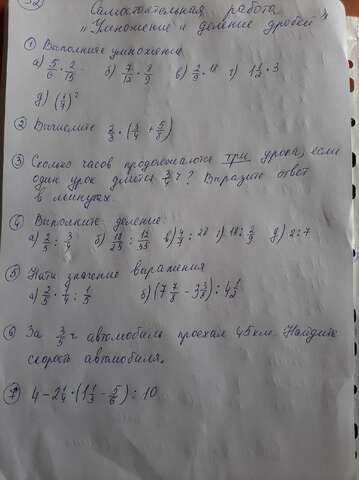 Самостоятельная работа
"Умножение и деление дробей"
① Выполните умножение
а) 5/6 · 2/15 б) 7/12 · 8/9 в) 2/9 · 18 г) 1 1/2 · 3
д) (1/7)²
② Вычислите 2/3 · (3/4 + 5/8)
③ Сколько часов продолжаются три урока, если
один урок длится 3/4 ч? Выразите ответ
в минутах
④ Выполните деление:
а) 2/5 : 3/4 б) 18/25 : 12/35 в) 4/7 : 28 г) 18 : 2/9 д) 2 : 7
⑤ Найти значение выражения
а) 2/5 · 1/4 : 1/5 б) (7 7/8 - 3 3/8) : 4 1/2
⑥ За 3/5 ч автомобиль проехал 45 км. Найдите
скорость автомобиля.
⑦ 4 - 2 1/4 · (1 1/3 - 5/6) : 10